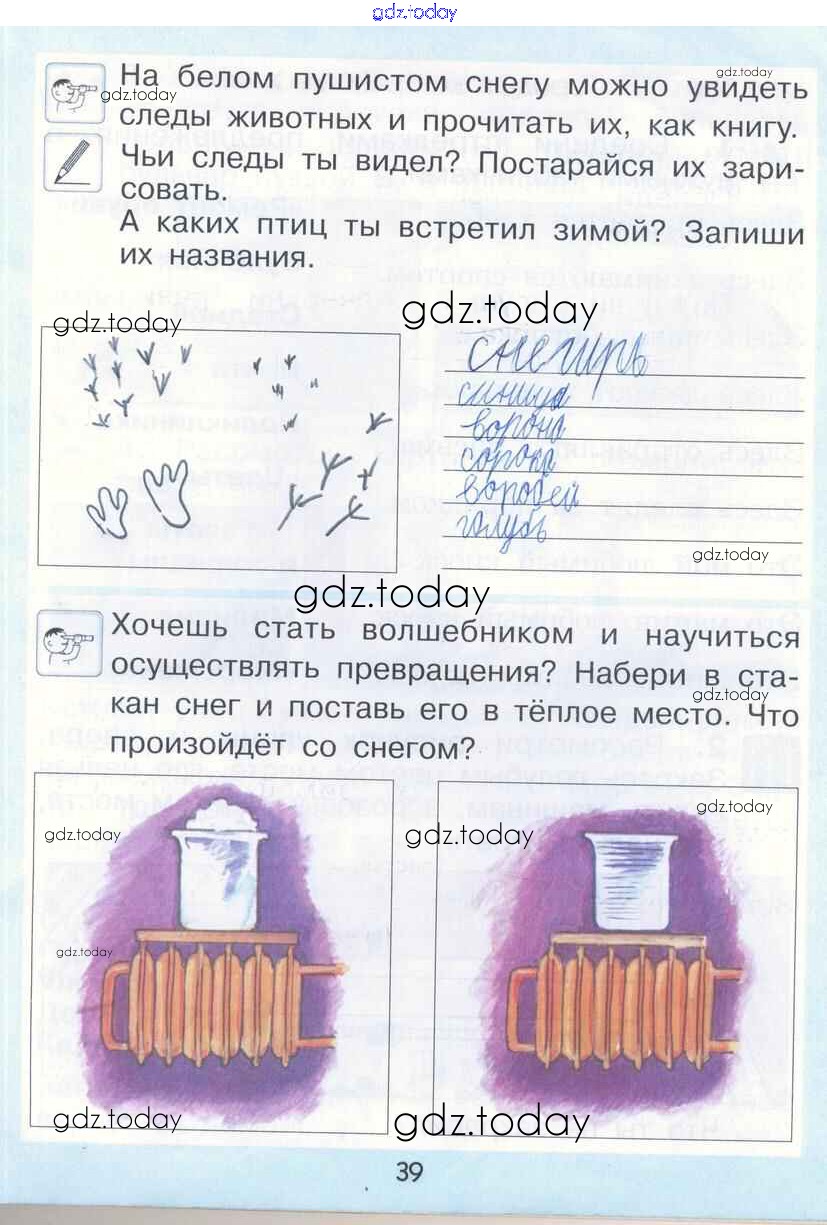 gdz.today
На белом пушистом снегу можно увидеть
gdz.today
gdz.today
следы животных и прочитать их, как книгу.
Чьи следы ты видел? Постарайся их зари-
совать.
А каких птиц ты встретил зимой? Запиши
их названия.
gdz.today
gdz.today
снегирь
синица
ворона
сорока
воробей
голубь
gdz.today
gdz.today
Хочешь стать волшебником и научиться
осуществлять превращения? Набери в ста-
gdz.today
кан снег и поставь его в тёплое место. Что
произойдёт со снегом?
gdz.today
gdz.today
gdz.today
gdz.today
gdz.today
gdz.today
39